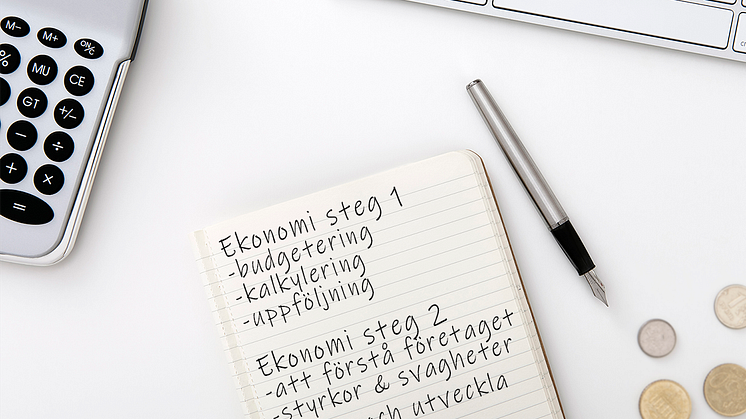 M-
M+
ON/C
%
MU
CE
GT
+/-
-
÷
+
×
=
Ekonomi steg 1
-budgetering
-kalkylering
-uppföljning
Ekonomi steg 2
-att förstå företaget
-styrkor & svagheter
och utveckla